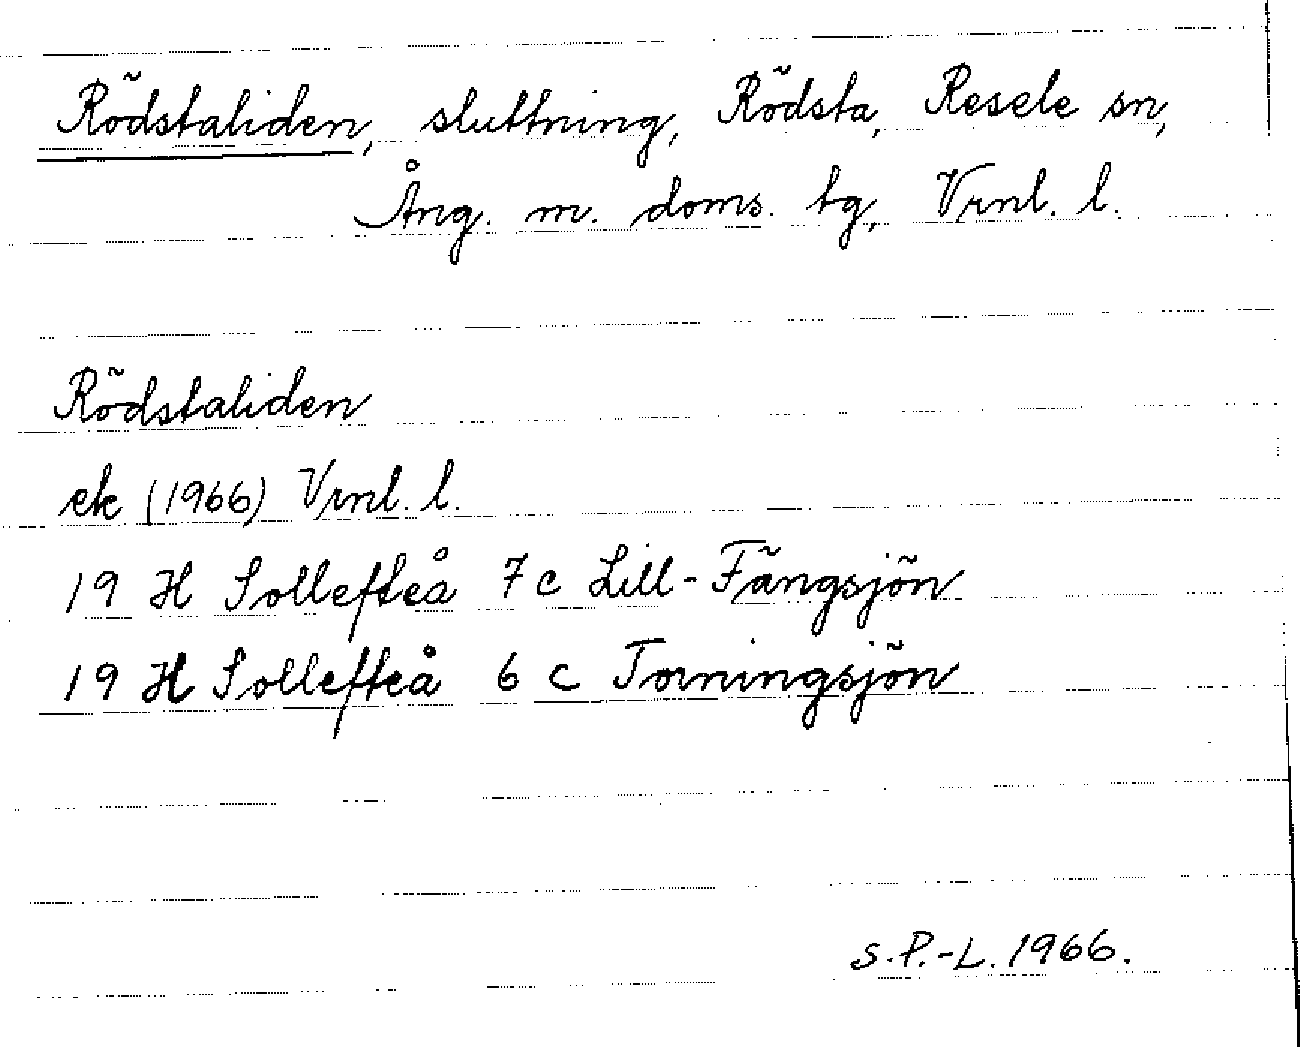 Rödstaliden, sluttning, Rödsta, Resele sn,
Ång. m. doms. tg, Vrnl. l.
Rödstaliden
ek (1966) Vrnl. l.
19 H Sollefteå 7 c Lill-Fängsjön
19 H Sollefteå 6 c Torningsjön
S.P.-L. 1966.